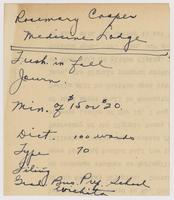 Rosemary Cooper
Medicine Lodge
Tush. in fall
Journ.
Min. of $15 or $20.
Dict. 100 words
Type 70
Filing
Grad. Bus. Prep. School
Wichita